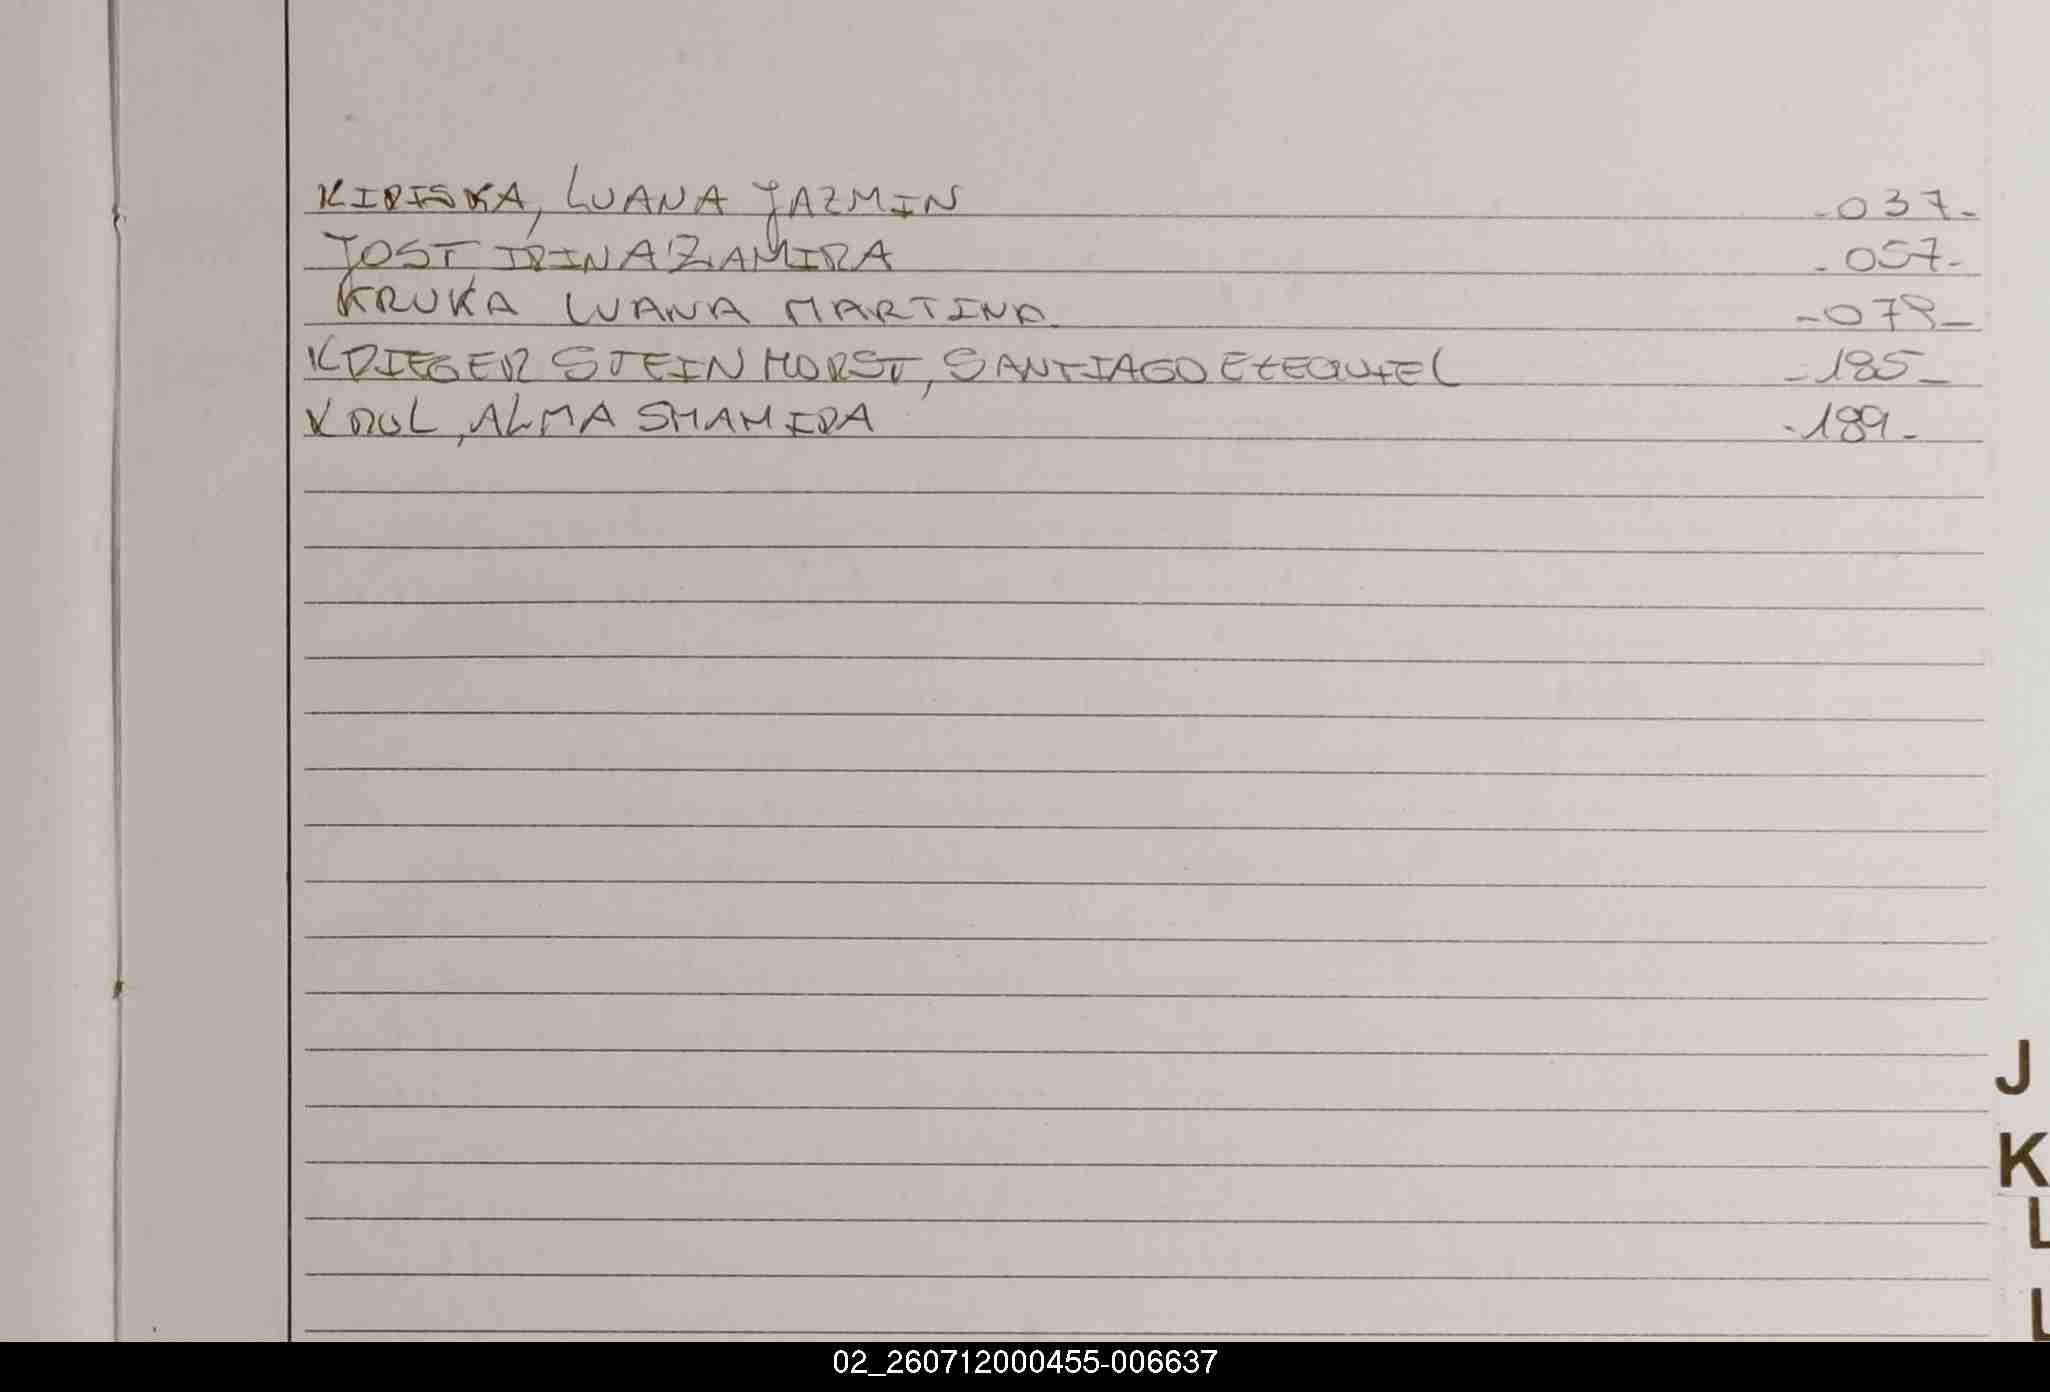 KIRISKA, LUANA YAZMIN -037-
JOST, IRINA ZAMIRA -057-
KRUKA LUANA MARTINA -079-
KRIEGER STEINHORST, SANTIAGO EZEQUIEL -185-
KRUL, ALMA SHAMIRA -189-
J
K
L
02_260712000455-006637